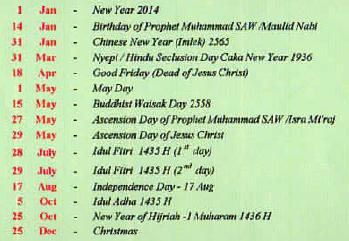 1 Jan - New Year 2014
14 Jan - Birthday of Prophet Muhammad SAW /Maulid Nabi
31 Jan - Chinese New Year (Imlek) 2565
31 Mar - Nyepi / Hindu Seclusion Day Caka New Year 1936
18 Apr - Good Friday (Dead of Jesus Christ)
1 May - May Day
15 May - Buddhist Waisak Day 2558
27 May - Ascension Day of Prophet Muhammad SAW /Isra Mi'raj
29 May - Ascension Day of Jesus Christ
28 July - Idul Fitri 1435 H (1st day)
29 July - Idul Fitri 1435 H (2nd day)
17 Aug - Independence Day - 17 Aug
5 Oct - Idul Adha 1435 H
25 Oct - New Year of Hijriah -1 Muharam 1436 H
25 Dec - Christmas